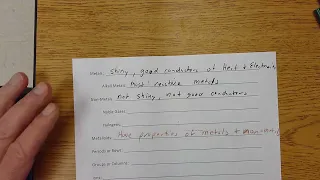 Metals: shiny, good conductors of Heat & Electricity
Alkali Metals: Most reactive metals
Non-Metals: not shiny, not good conductors
Noble Gases:
Halogens:
Metalloids: Have properties of metals & non-metals
Periods or Rows:
Groups or Columns: